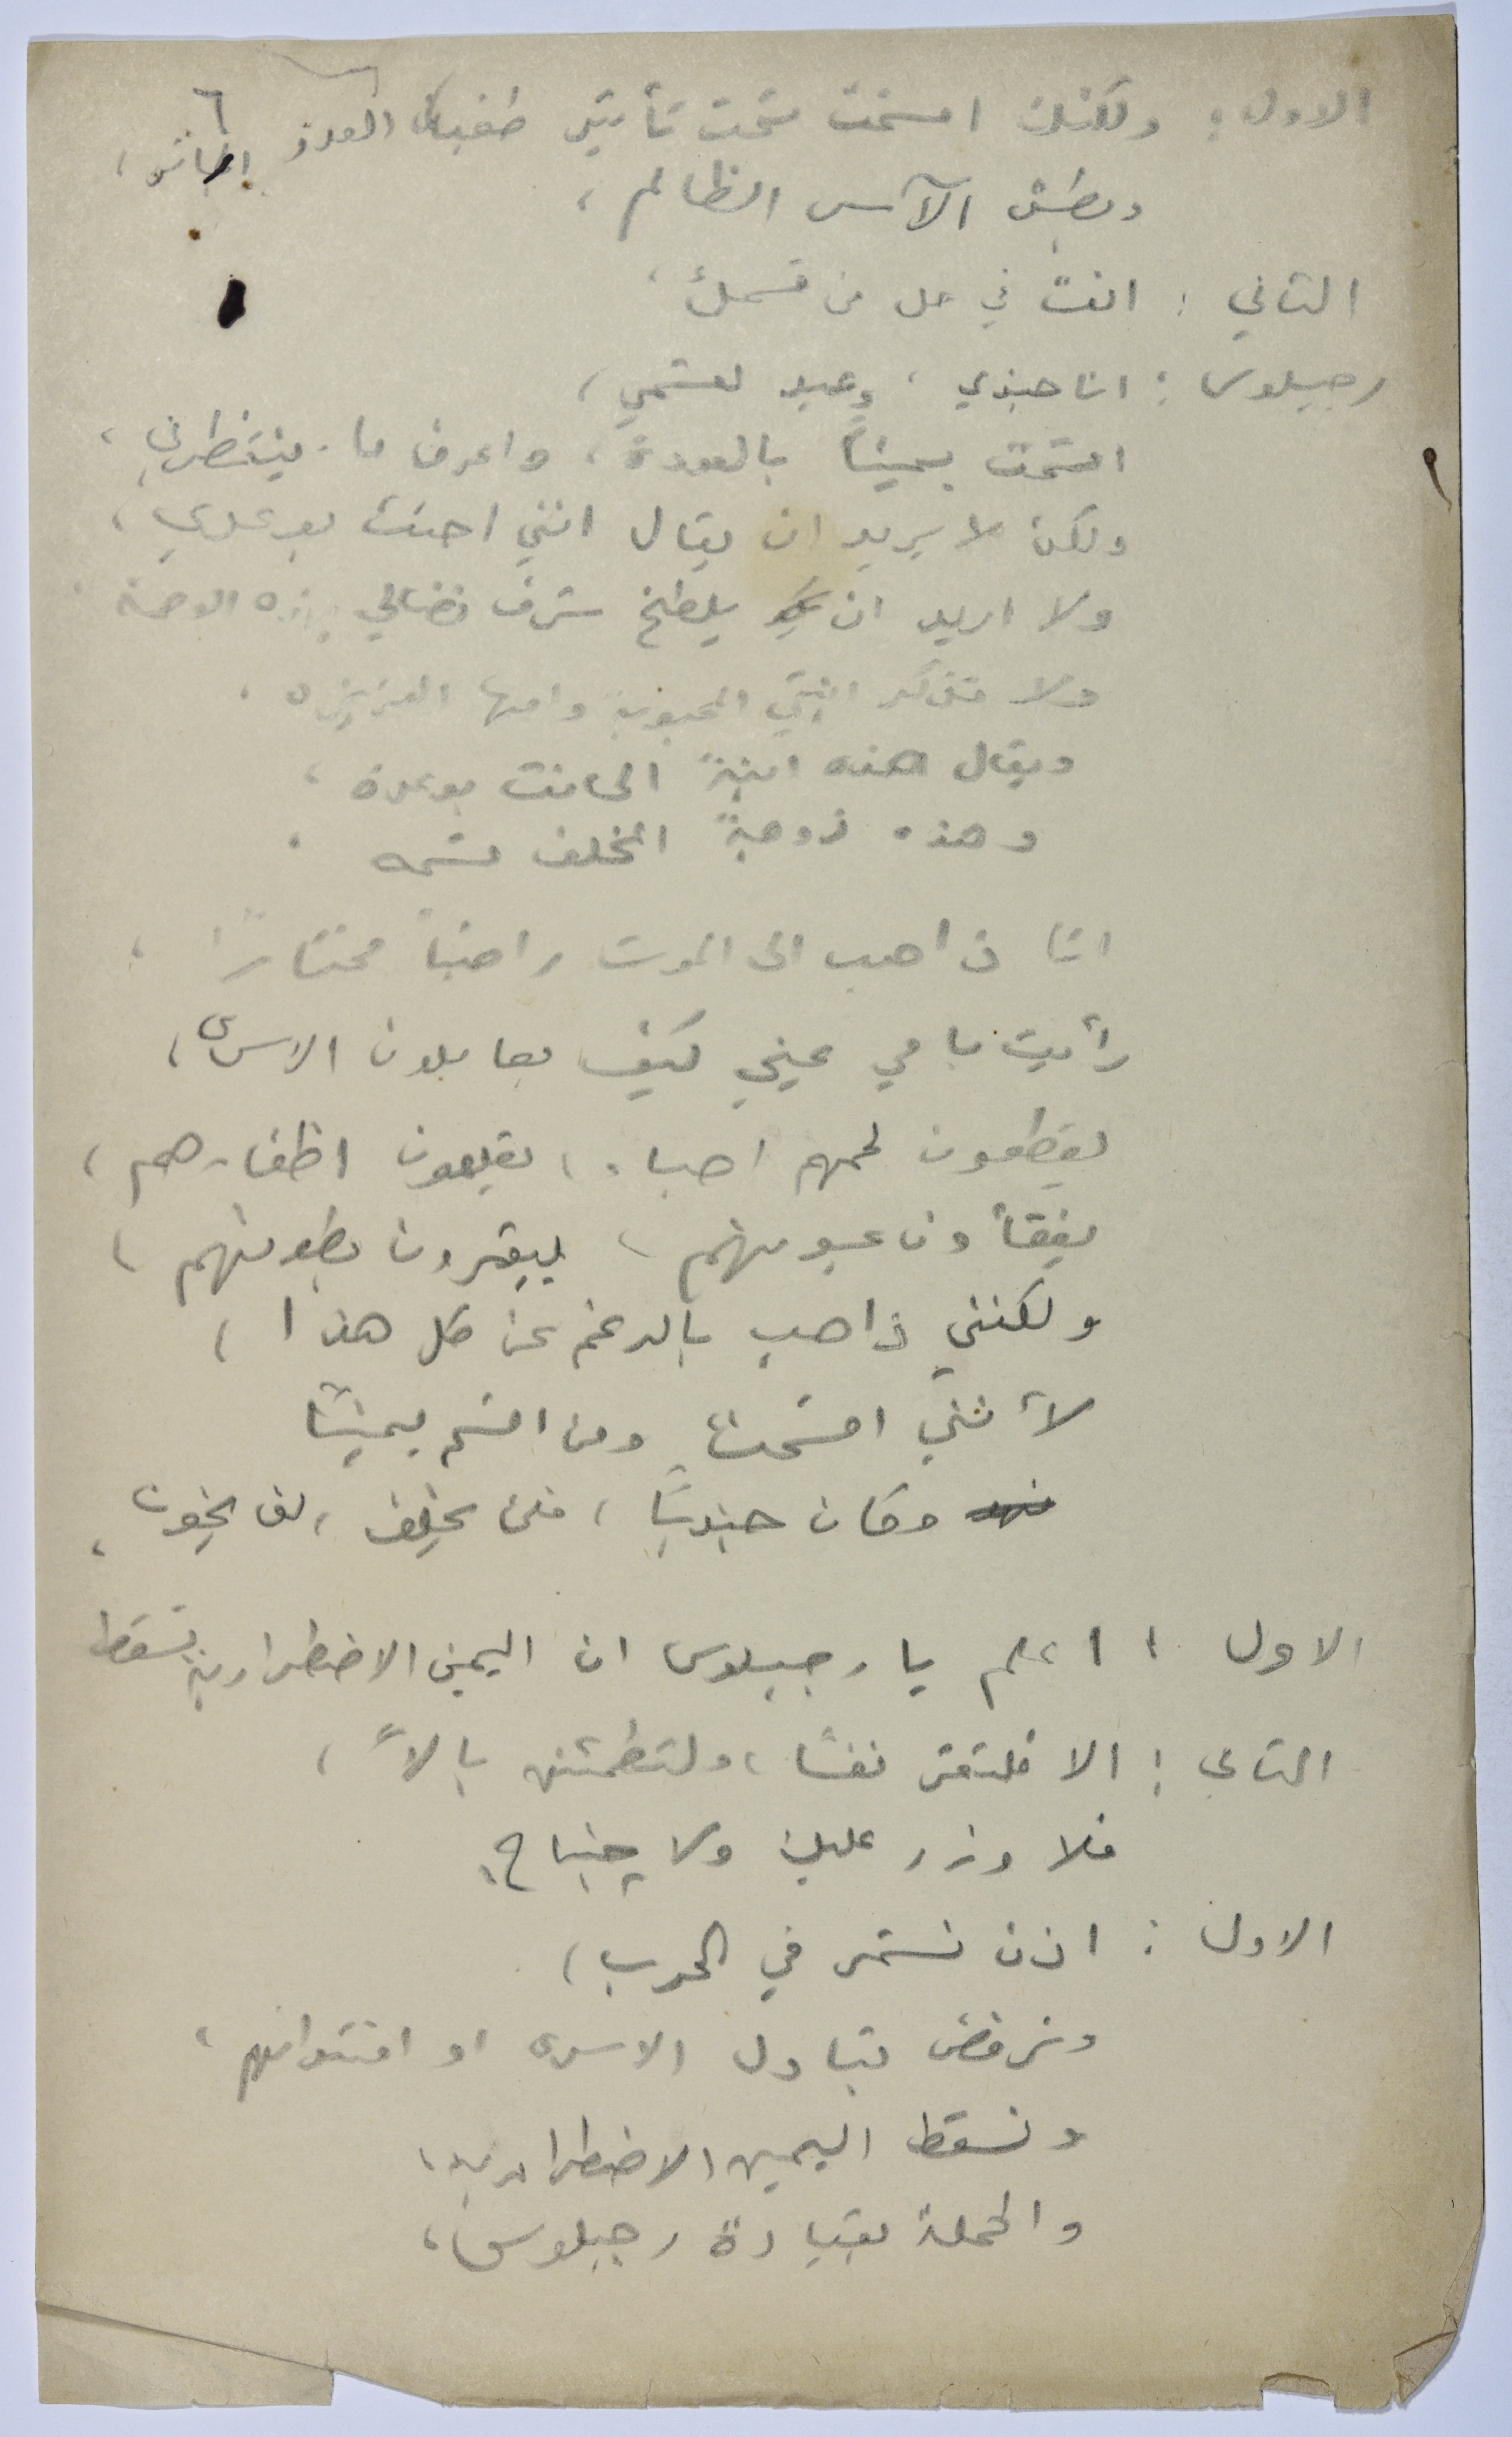 ٦
الاول : ولكنك اقسمت تحت تأثير طغيان العدو الغاشم ،
وبطش الآسر الظالم ،
الثاني : انت في حل من قسمك ،
رجيلوس : انا جندي ، وعبد لقسمي ،
اقسمت يمينًا بالعودة ، واعرف ما ينتظرني ،
ولكن لا يريد ان يقال انني احنث بوعدي ،
ولا اريد ان يلطخ شرف نضالي بهذه الوصمة .
ولا تذكر ابنتي المحبوبة وامها العزيزه ،
ويقال هذه ابنة الحانث بوعده ،
وهذه زوجة المخلف قسمه .
انا ذاهب الى الموت راضياً مختارًا ،
رأيت بأمي عيني كيف يعاملون الاسرى ،
يقطعون لحمهم احياء ، يقلعون اظفارهم ،
يفقأون عيونهم ، يبقرون بطونهم ،
ولكنني ذاهب بالرغم عن كل هذا ،
لأنني اقسمت ومن اقسم يمينًا
وكان جنديًا ، فلن يخلف ، لن يخون ،
الاول : اعلم يا رجيلوس ان اليمين الاضطرارية تسقط
الثاني : الا فلتقر نفسًا ، ولتطمئن بالاً ،
فلا وزر عليك ولا جناح .
الاول : اذن نستمر في الحرب ،
ونرفض تبادل الاسرى او افتدائهم ،
ونسقط اليمين الاضطرارية ،
والحملة بقيادة رجيلوس ،